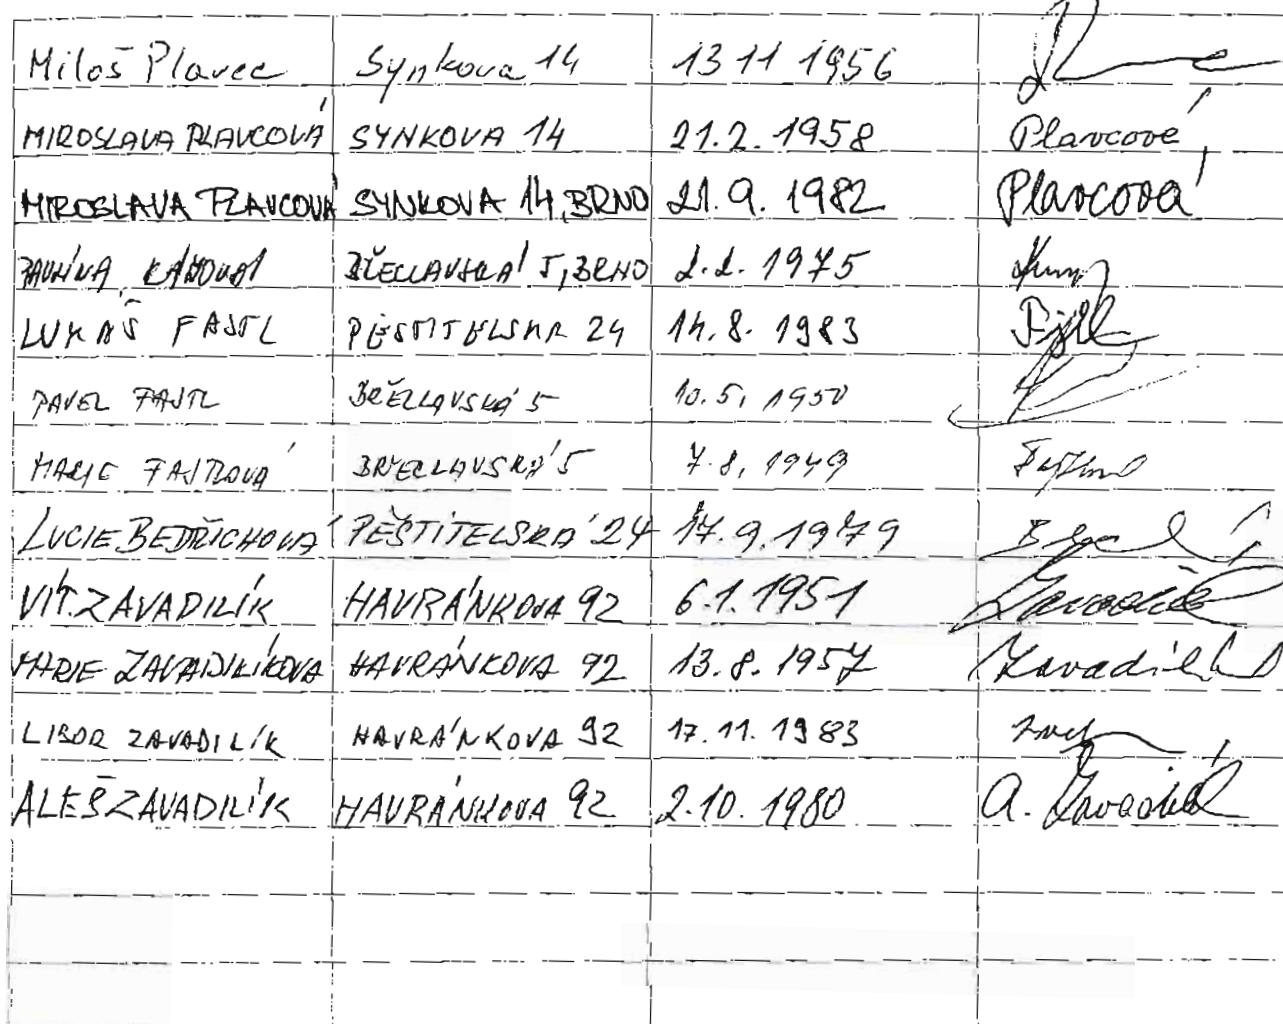 Miloš Plavec Synkova 14 13 11 1956
MIROSLAVA PLAVCOVÁ SYNKOVA 14 21.2.1958 Plavcové
MIROSLAVA PLAVCOVÁ SYNKOVA 14, BRNO 21.9.1982 Plavcová
BŘECLAVSKÁ 5, BRNO 2.2.1975
LUKÁŠ FAJTL PĚSTITELSKÁ 24 14.8.1983
PAVEL FAJTL BŘECLAVSKÁ 5 10.5.1950
MARIE FAJTLOVÁ BŘECLAVSKÁ 5 7.8.1949
LUCIE BEDŘICHOVÁ PĚSTITELSKÁ 24 17.9.1979
VÍT ZAVADILÍK HAVRÁNKOVA 92 6.1.1951 Zavadilík
MARIE ZAVADILÍKOVA HAVRÁNKOVA 92 13.8.1957
LIBOR ZAVADILÍK HAVRÁNKOVA 92 17.11.1983
ALEŠ ZAVADILÍK HAVRÁNKOVA 92 2.10.1980 A. Zavadilík